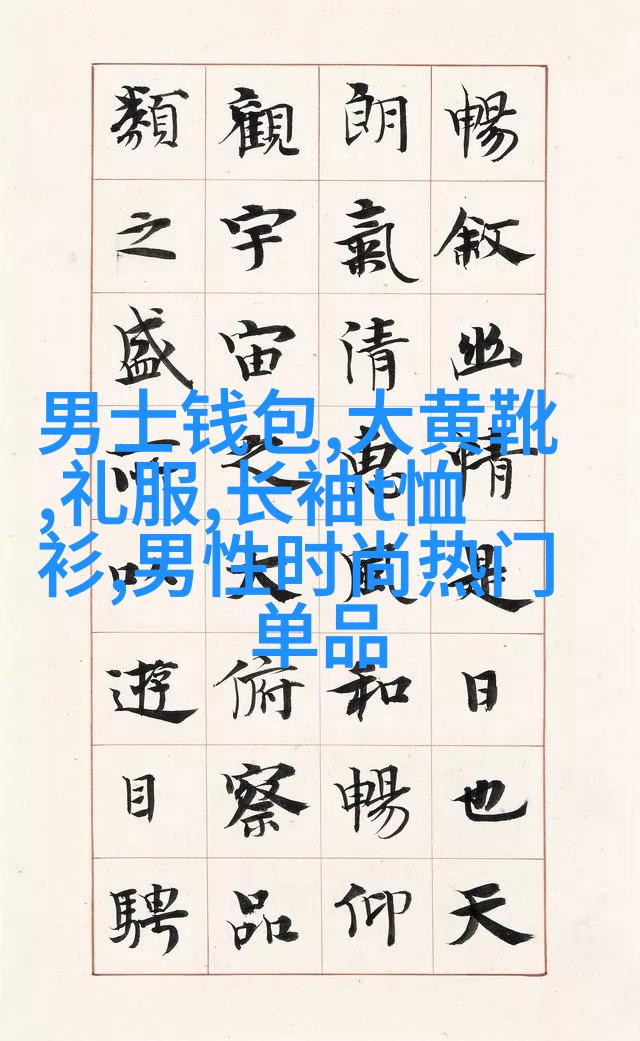 暢敘幽情是日也天
朗氣清惠風和暢仰
觀宇宙之大俯察品
類之盛所以遊目騁
男士钱包,大黄靴
,礼服,长袖t恤
衫,男性时尚热门
单品